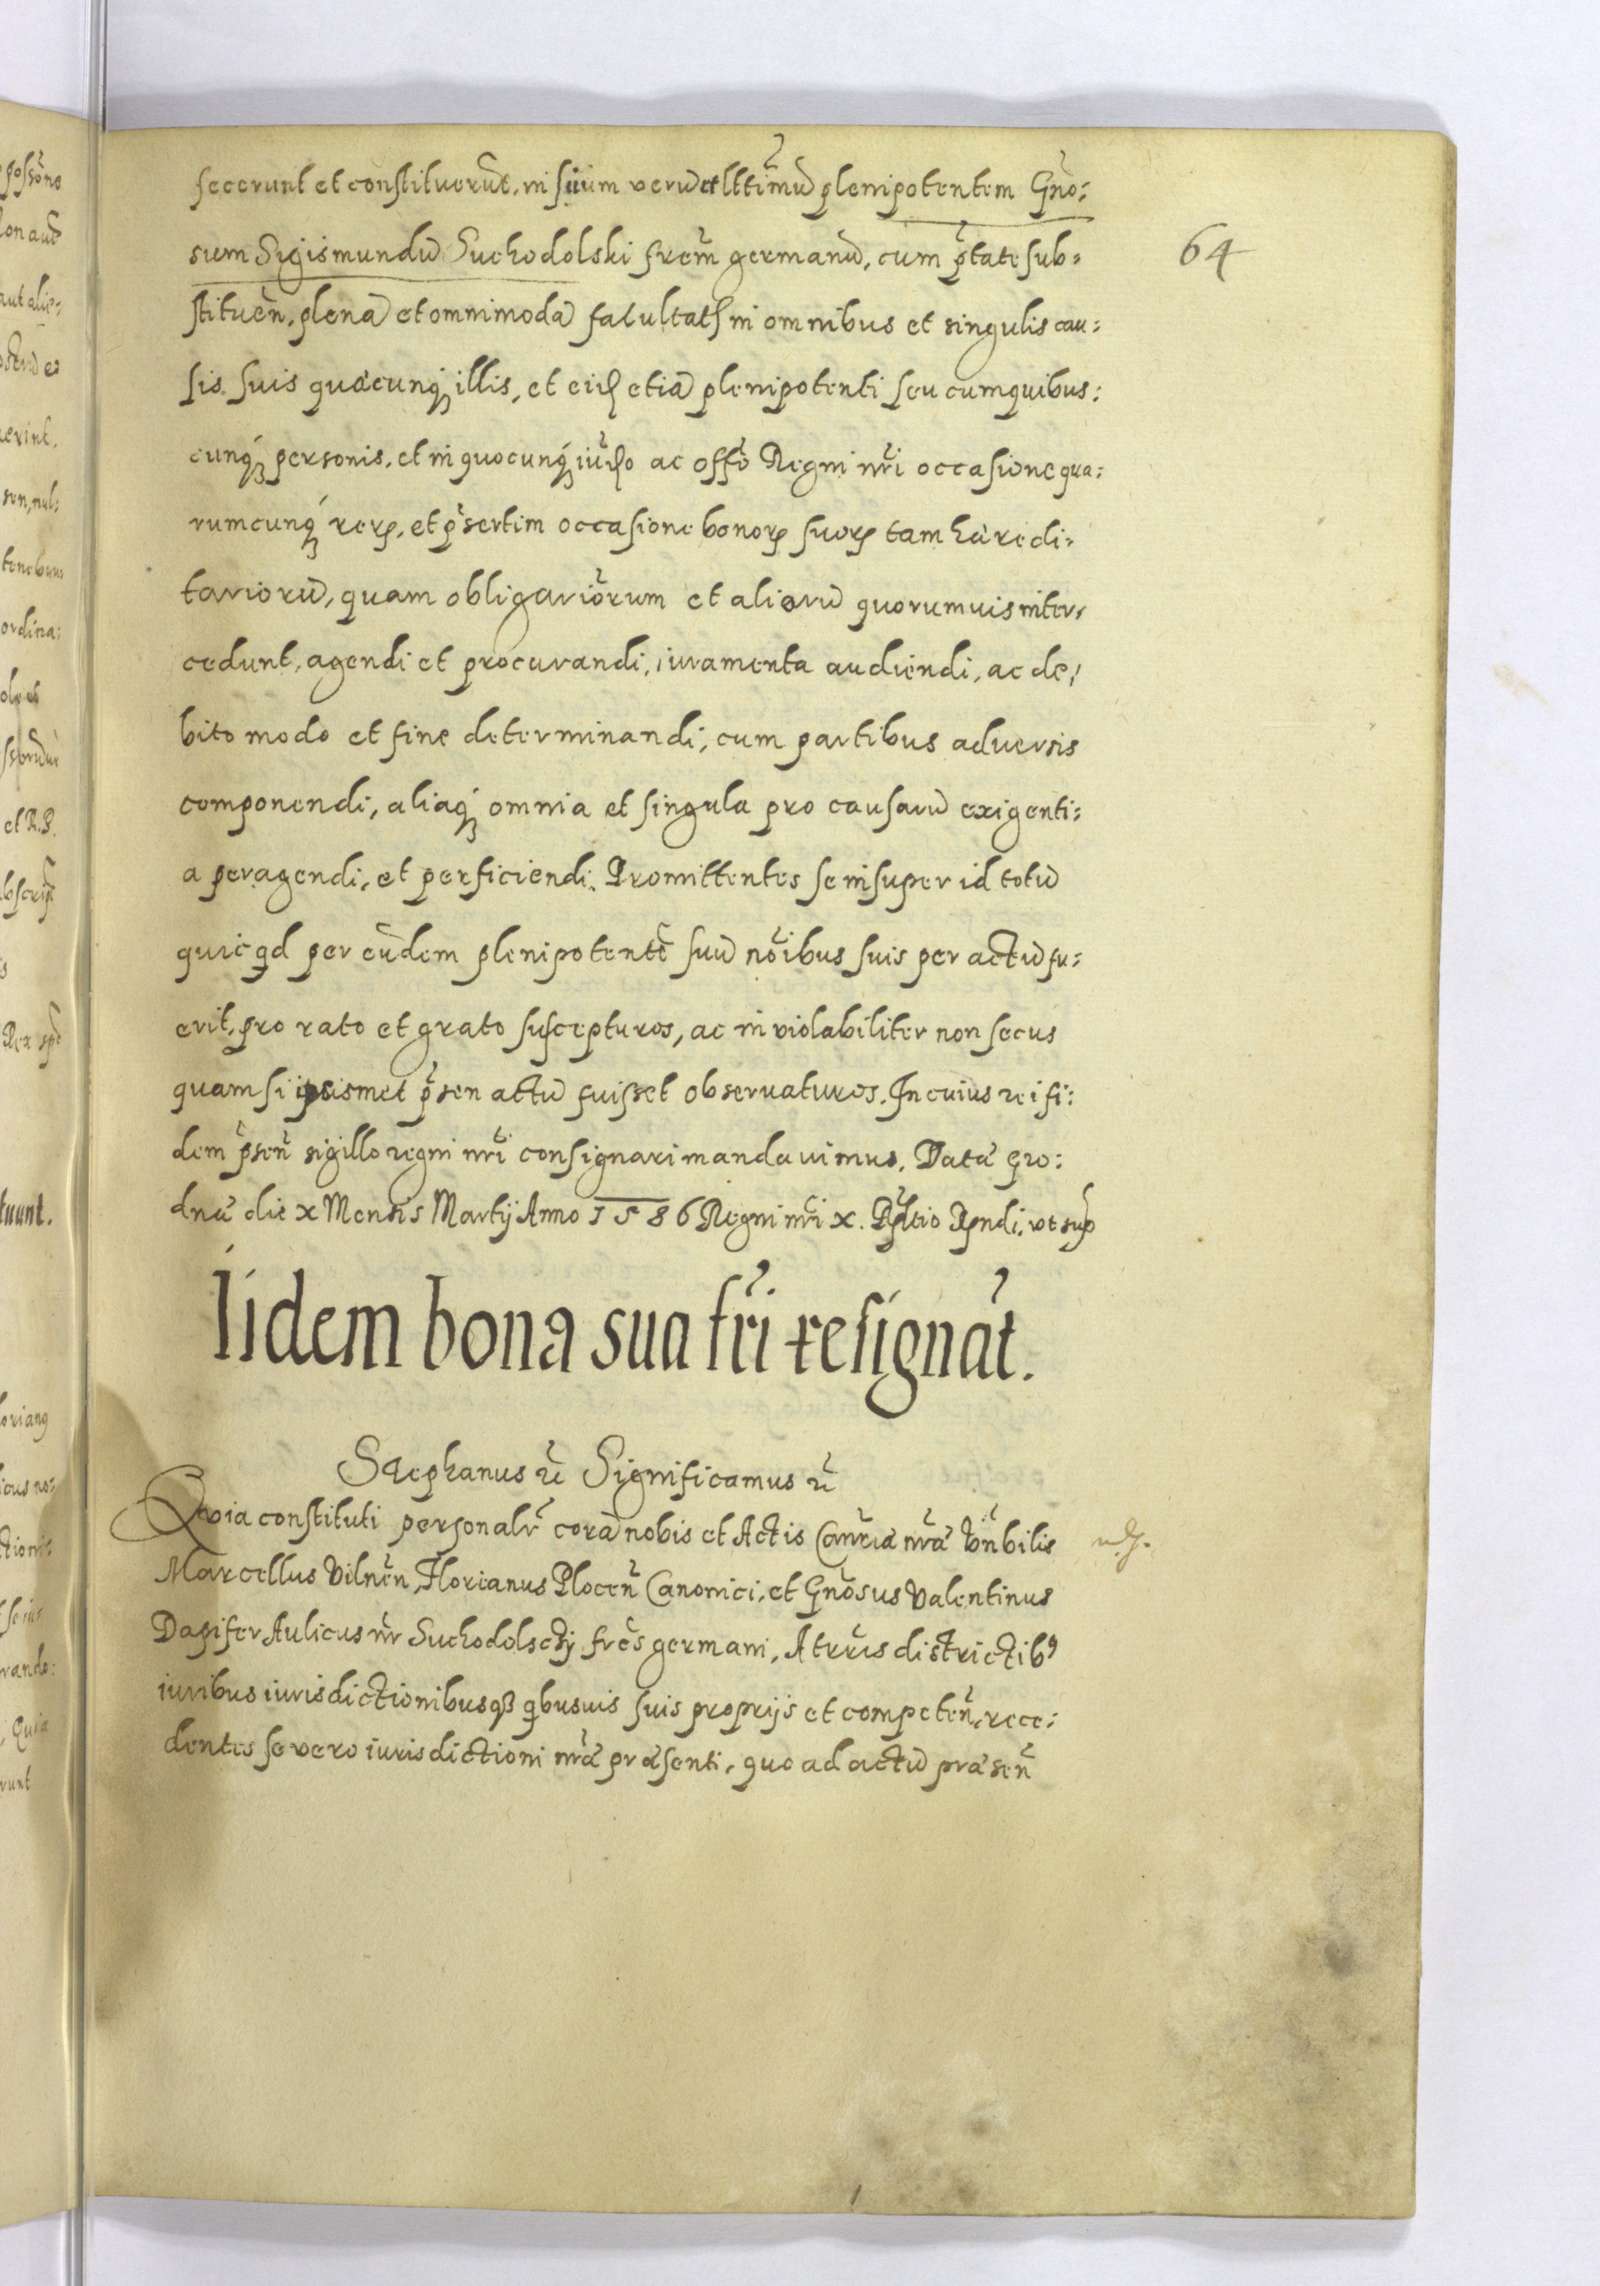 fecerunt et constituerūt, in suum verū et lttimū plenipotentem Gno:
sum Sigismundū Suchodolski frem̃ germanū, cum ptate sub-
stituen̄, plenā et omnimodā facultatē in omnibus et singulis cau:
sis suis quacunq illis, et eisd etiā plenipotenti seu cum quibus:
cunq personis, et in quocunq iudo ac offo Regni nri occasione qua:
rumcunq reru, et psertim occasione bonoru suoru tam haeredi-
tariorū, quam obligatiorum et aliorū quorumuis inter-
cedunt, agendi et procurandi, iuramenta audiendi, ac de,
bito modo et fine determinandi, cum partibus aduersis
componendi, aliaq omnia et singula pro causarū exigenti:
a peragendi, et perficiendi. Promittentes se insuper id totū
quicqd per eūdem plenipotentē suū noibus suis per actū fu:
erit, pro rato et grato suscepturos, ac inviolabiliter non secus
quam si ipsismet psen actū fuisset obseruaturos. In cuius rei fi:
dem psen̄ sigillo regni nri consignari mandauimus. Data Gro:
dna die x Mensis Martij Anno 1586 Regni nri x. Rndi, vt sup
Iidem bona sua fri resignāt.
64
Staephanus rc Significamus rc
Quia constituti personalr corā nobis et Actis Canrciae nrae Vnbilis
Marcellus Vilnen̄, Florianus Plocen̄ Canonici, et Gnosus Valentinus
Dapifer Aulicus nr Suchodolscÿ fres germani, A trris districtibꝰ
iuribus iurisdictionibusq qbusuis suis proprijs et competen̄, rece:
dentes se vero iurisdictioni nrae praesenti, quo ad actū praesen̄